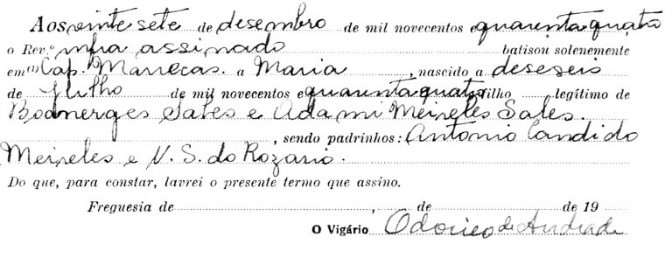 Aos vinte sete de desembro de mil novecentos e quarenta quatro
o Rev.º infra assinado batisou solenemente
em Cap. Marrecas. a Maria, nascido a deseseis
de Julho de mil novecentos e quarenta quatro filho legítimo de
Boanerges Sales e Adami Meireles Sales.
, sendo padrinhos: Antonio Candido
Meireles e N. S. do Rozario.
Do que, para constar, lavrei o presente termo que assino.
Freguesia de , de de 19
O Vigário Odorico de Andrade